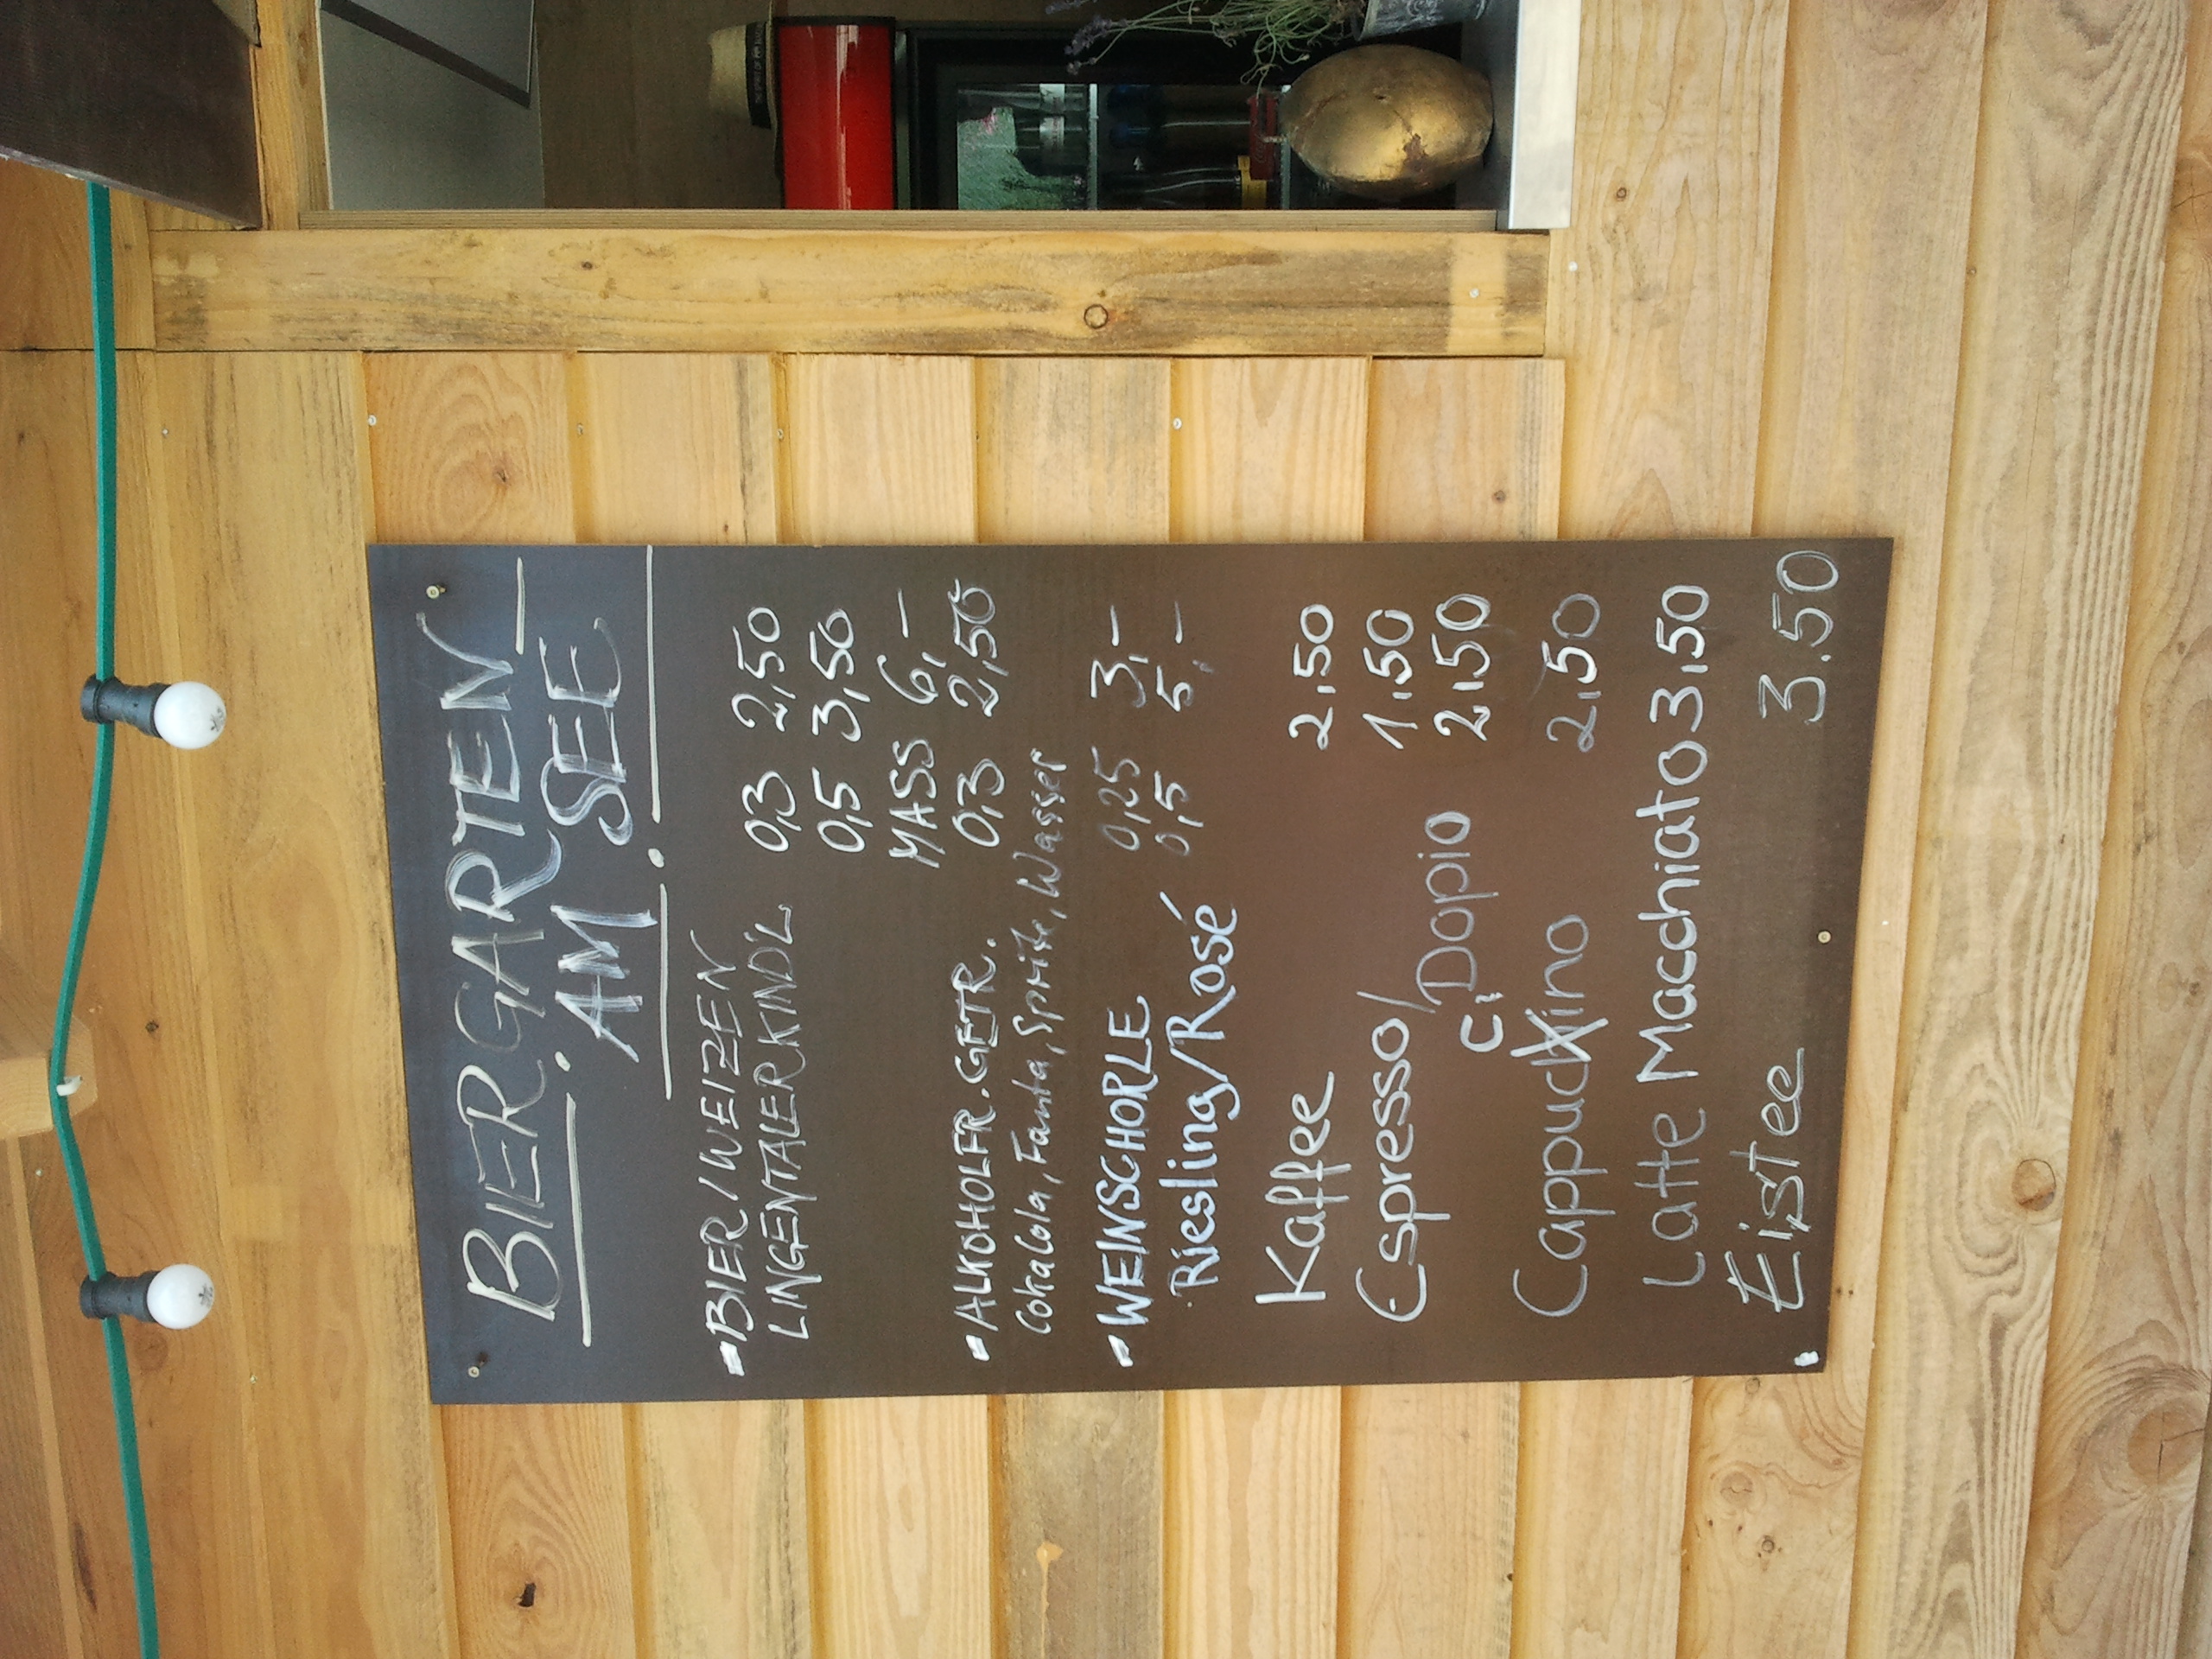 BIERGARTEN
AM SEE
BIER / WEIZEN
LINGENTALER KINDL 0,3 2,50
0,5 3,50
MASS 6,-
ALKOHOLFR. GETR. 0,3 2,50
Coka Cola, Fanta, Sprite, Wasser
WEINSCHORLE 0,25 3,-
Riesling/Rosé 0,5 5,-
Kaffee 2,50
Espresso/ 1,50
Dopio 2,50
c,
Cappuckino 2,50
Latte Macchiato 3,50
Eistee 3.50